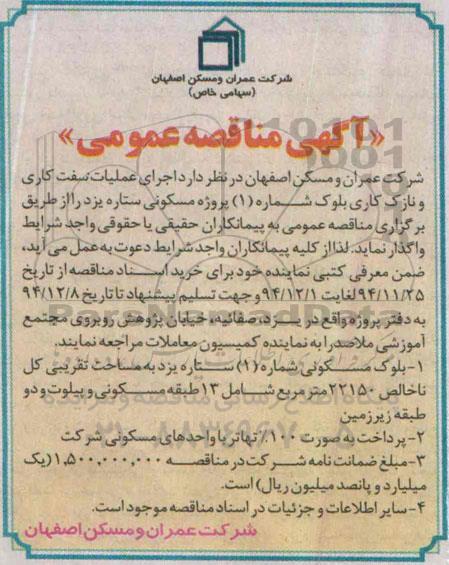 شرکت عمران ومسکن اصفهان
(سهامی خاص)
«آگهی مناقصه عمومی»
شرکت عمران و مسکن اصفهان در نظر دارد اجرای عملیات سفت کاری
و نازک کاری بلوک شماره (۱) پروژه مسکونی ستاره یزد را از طریق
برگزاری مناقصه عمومی به پیمانکاران حقیقی یا حقوقی واجد شرایط
واگذار نماید. لذا از کلیه پیمانکاران واجد شرایط دعوت به عمل می آید،
ضمن معرفی کتبی نماینده خود برای خرید اسناد مناقصه از تاریخ
۹۴/۱۱/۲۵ لغایت ۹۴/۱۲/۱ و جهت تسلیم پیشنهاد تا تاریخ ۹۴/۱۲/۸
به دفتر پروژه واقع در یزد، صفائیه، خیابان پژوهش روبروی مجتمع
آموزشی ملاصدرا به نماینده کمیسیون معاملات مراجعه نمایند.
۱- بلوک مسکونی شماره (۱) ستاره یزد به مساحت تقریبی کل
ناخالص ۲۲۱۵۰ مترمربع شامل ۱۳ طبقه مسکونی و پیلوت و دو
طبقه زیرزمین
۲- پرداخت به صورت ۱۰۰٪ تهاتر با واحدهای مسکونی شرکت
۳- مبلغ ضمانت نامه شرکت در مناقصه ۱,۵۰۰,۰۰۰,۰۰۰ (یک
میلیارد و پانصد میلیون ریال) است.
۴- سایر اطلاعات و جزئیات در اسناد مناقصه موجود است.
شرکت عمران ومسکن اصفهان